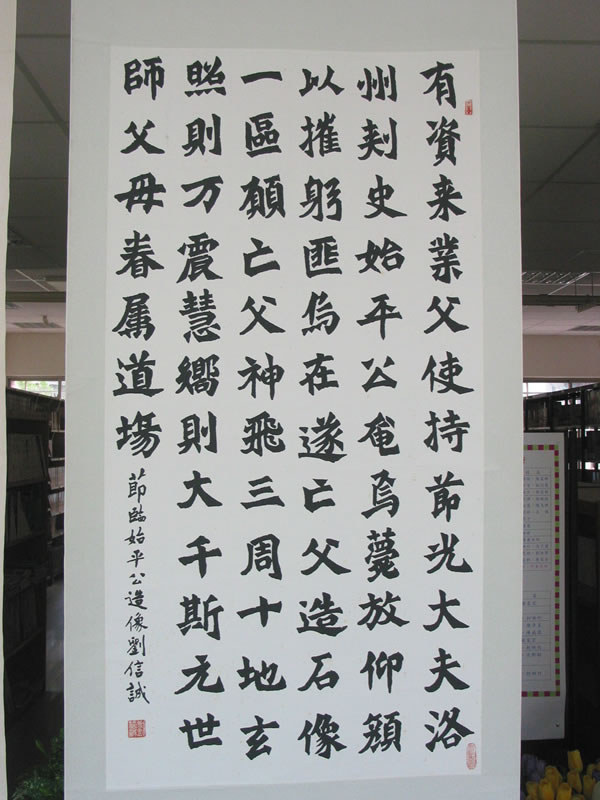 有資来業父使持節光大夫洛
州刾史始平公奄焉薨放仰顏
以摧躬匪烏在遂亡父造石像
一區願亡父神飛三周十地玄
照則万震慧嚮則大千斯无世
師父母眷属道場
節臨始平公造像劉信誠